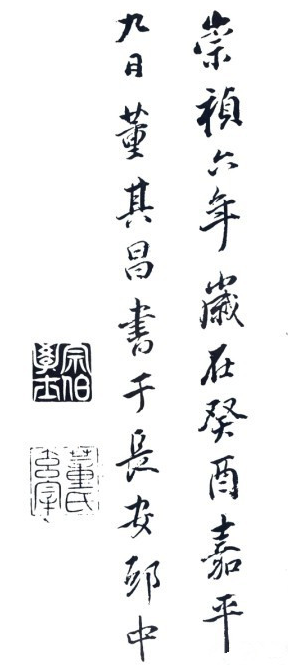 崇禎六年歲在癸酉嘉平
九日董其昌書于長安邸中
宗伯學士
董氏玄宰